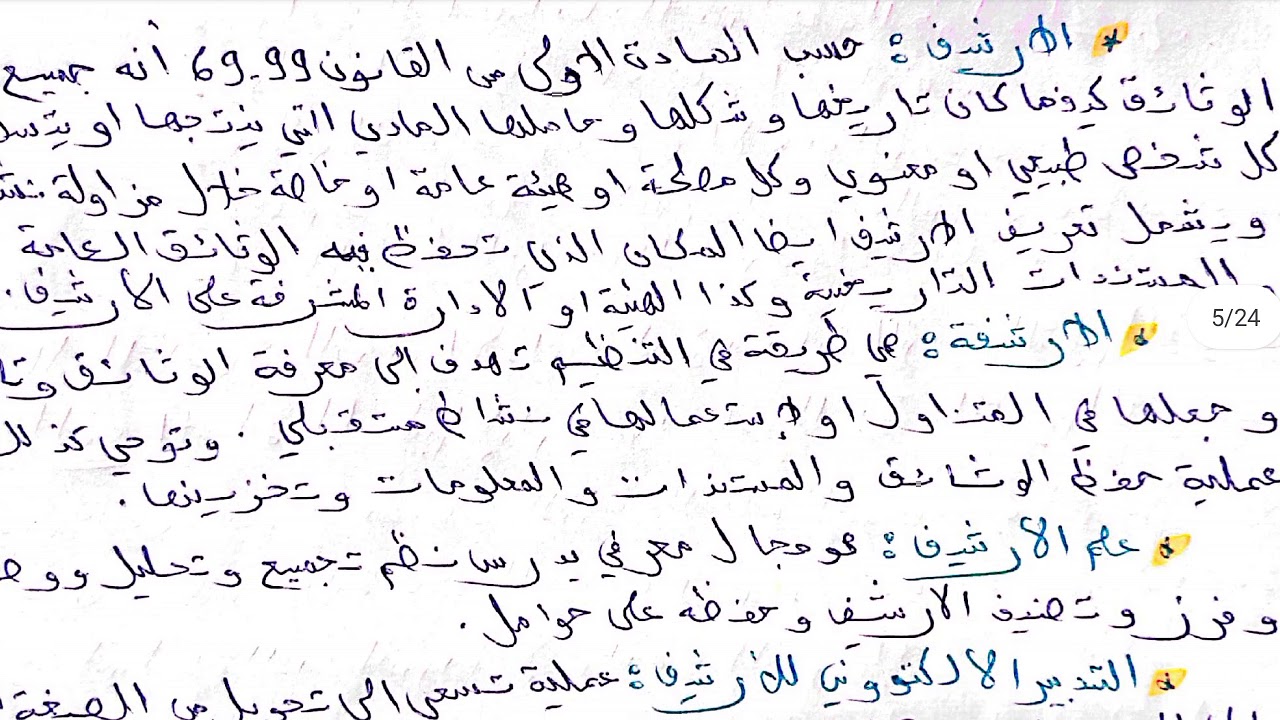 * الارشيف: حسب المادة الاولى من القانون 69.99 أنه جميع
الوثائق كيفما كان تاريخها وشكلها وحاملها المادي التي ينتجها او يتسل
كل شخص طبيعي او معنوي وكل مصلحة او هيئة عامة او خاصة خلال مزاولة نش
ويشمل تعريف الارشيف ايضا المكان الذي تحفظ فيه الوثائق العامة
المستندات التاريخية وكذا الهيئة او الادارة المشرفة على الأرشيف.
5/24
* الارشفة: هي طريقة في التنظيم تهدف الى معرفة الوثائق وتا
وجعلها في المتناول او لإستعمالها في نشاط مستقبلي. وتوحي كذلك
عملية حفظ الوثائق والمستندات والمعلومات وتخزينها.
* علم الأرشيف: هو مجال معرفي يدرس نظم تجميع وتحليل ووص
وفرز وتصنيف الارشيف وحفظه على حوامل.
* التدبير الالكتروني للأرشيف: عملية تسعى الى تحويل من الصيغة